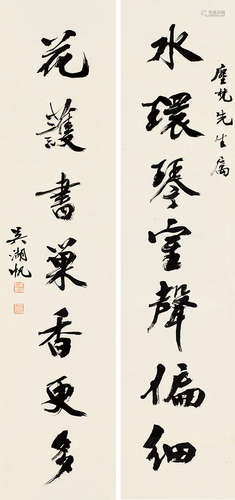 塵梵先生属
水環琴室聲偏細
花護書巢香更多
吳湖帆